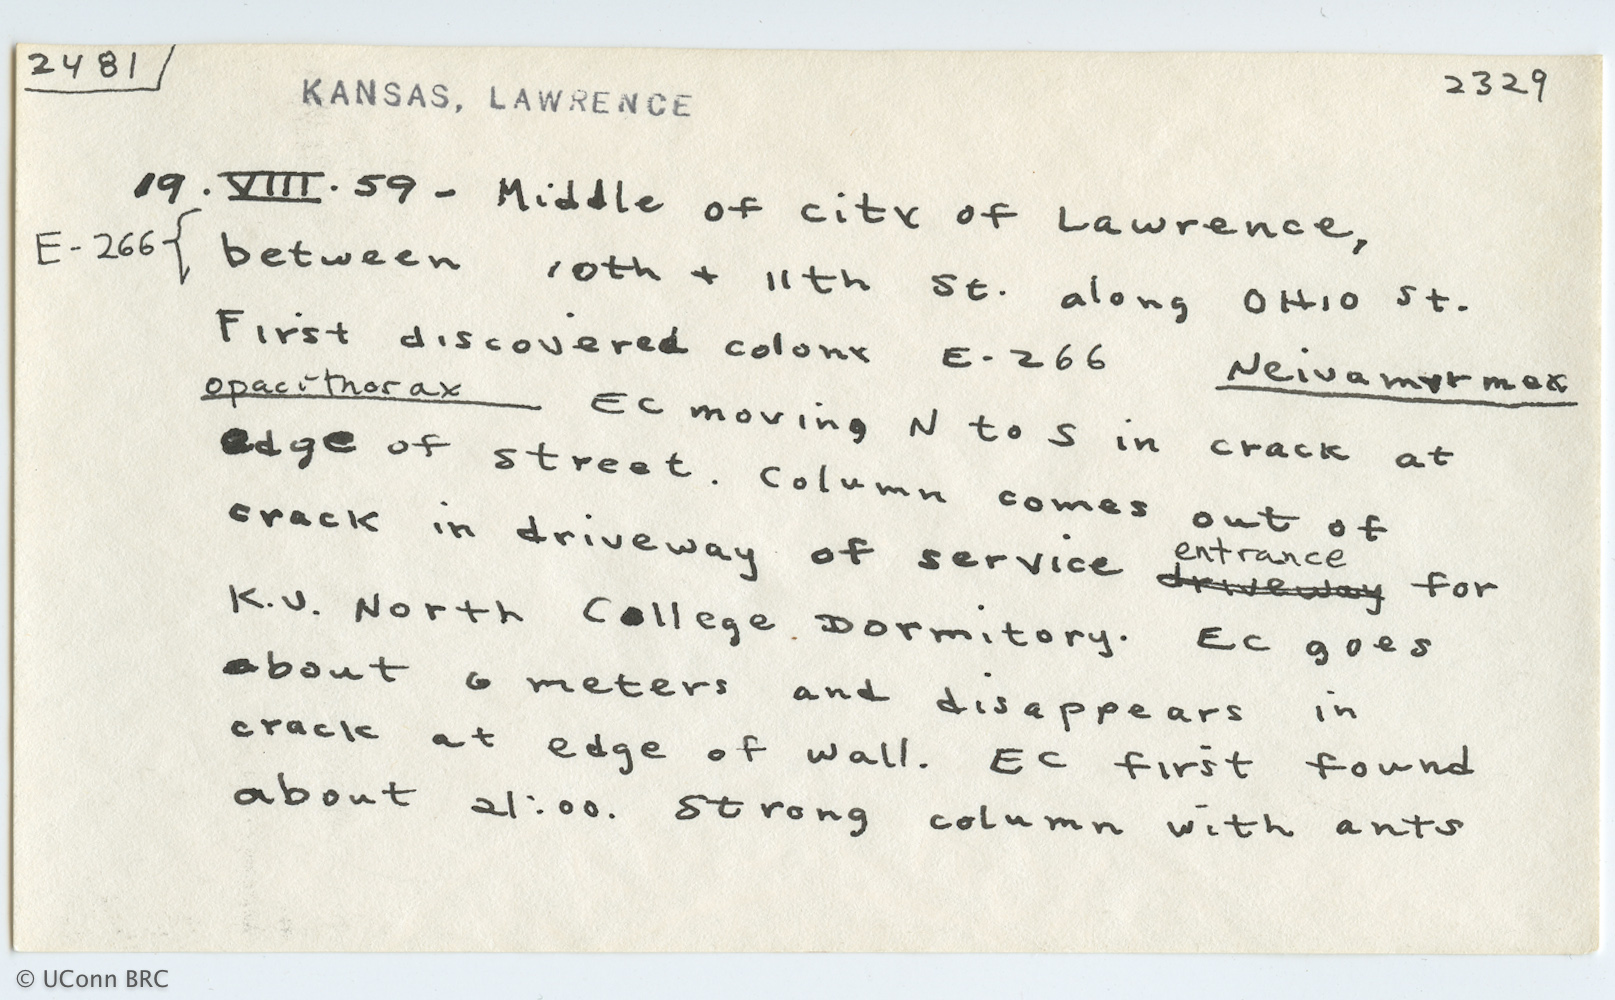 2481
2329
KANSAS, LAWRENCE
19.VIII.59 - Middle of city of Lawrence,
E-266 { between 10th + 11th St. along OHIO St.
First discovered colony E-266 Neivamyrmex
opacithorax EC moving N to S in crack at
edge of street. Column comes out of
crack in driveway of service driveway entrance for
K.U. North College Dormitory. EC goes
about 6 meters and disappears in
crack at edge of wall. EC first found
about 21:00. Strong column with ants
© UConn BRC